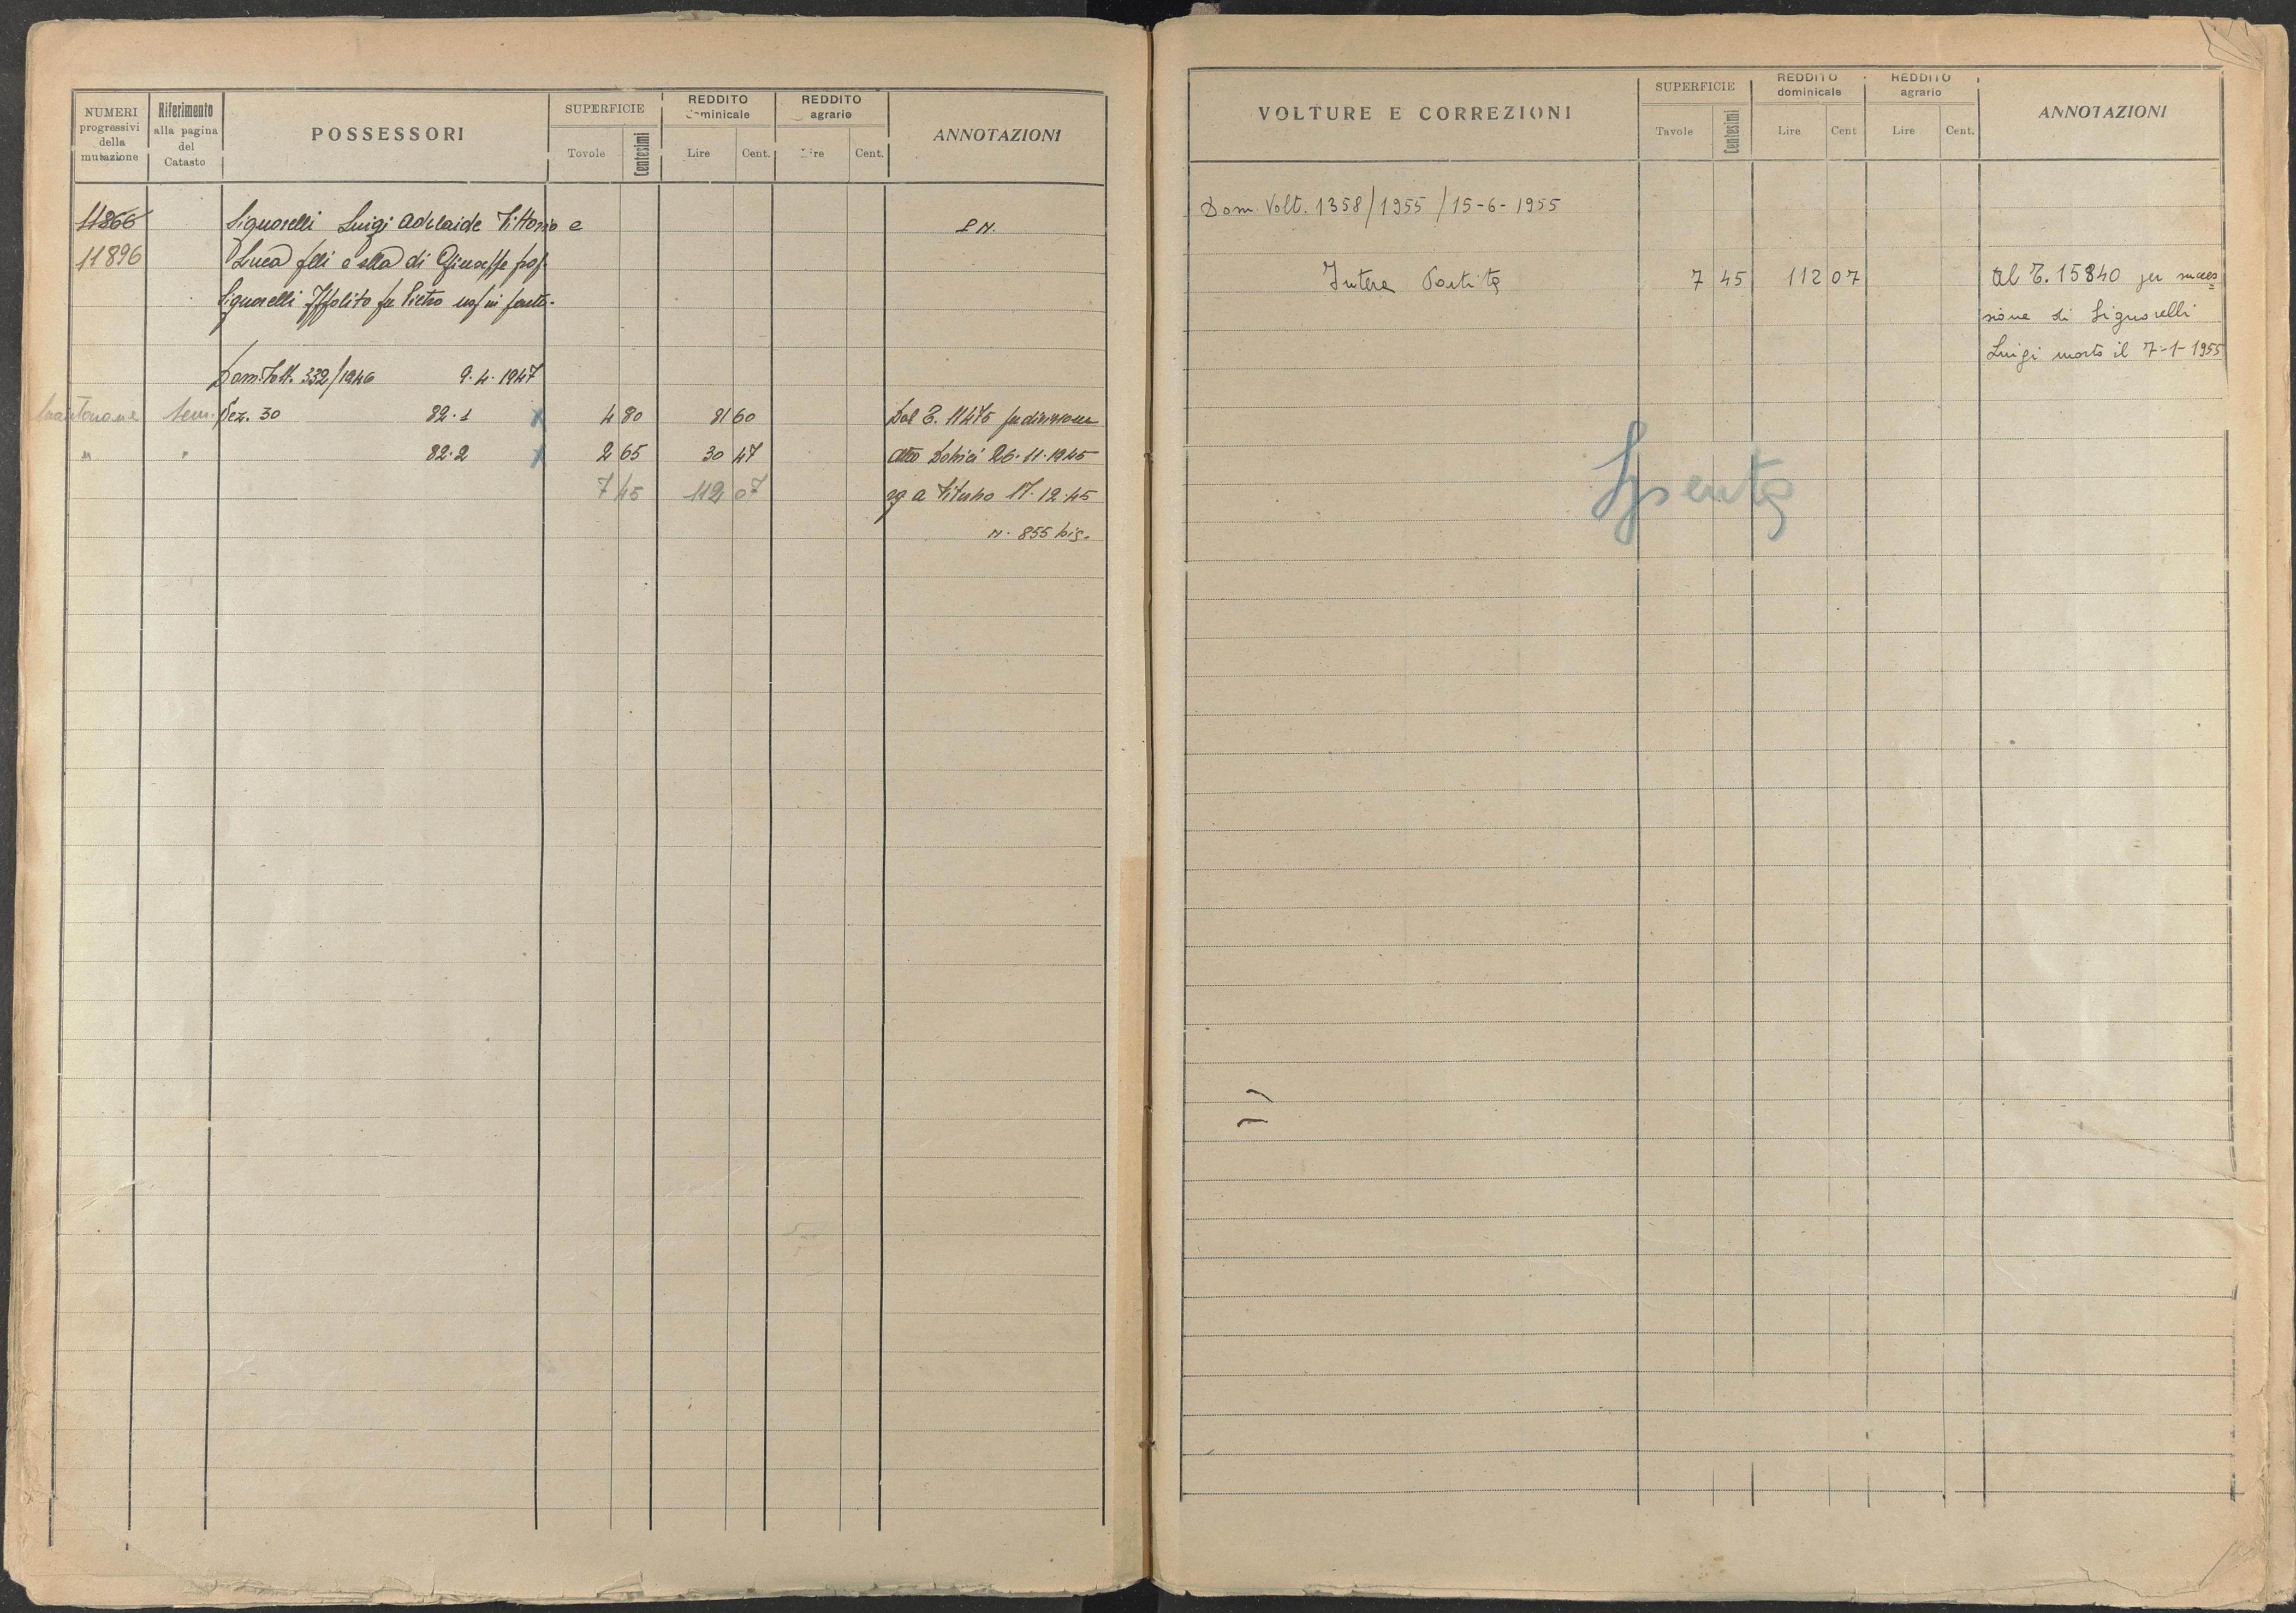 NUMERI progressivi della mutazione
Riferimento alla pagina del Catasto
POSSESSORI
SUPERFICIE
Tovole Centesimi
REDDITO dominicale
Lire Cent.
REDDITO agrario
Lire Cent.
ANNOTAZIONI
11866 Signorelli Luigi Adelaide Vittorio e P N.
11896 Luca flli e slla di Giuseppe prop.
Signorelli Ippolito fu Pietro usf in parte.
Dom. Volt. 332/1946 9.4.1947
Sem. Sez. 30 82.1 x 4 80 81 60 Dal P. 11475 per divisione
" " 82.2 x 2 65 30 47 atto 26.11.1945
7 45 112 07 rg a Viterbo 17.12.45
N. 855 bis.
VOLTURE E CORREZIONI
SUPERFICIE
Tavole Centesimi
REDDITO dominicale
Lire Cent
REDDITO agrario
Lire Cent.
ANNOTAZIONI
Dom. Volt. 1358/1955 / 15-6-1955
Intera Partita 7 45 112 07 Al P. 15840 per succes=
sione di Signorelli
Luigi morto il 7-1-1955
Spenta